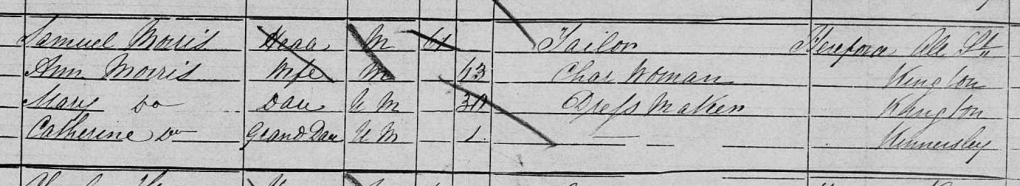 Samuel Morris Head M 61 Tailor Hereford All Sts
Ann Morris Wife M 43 Char Woman Kington
Mary Do Dau U M 20 Dress Maker Kington
Catherine Do Grand Dau U M 1 Kinnersley